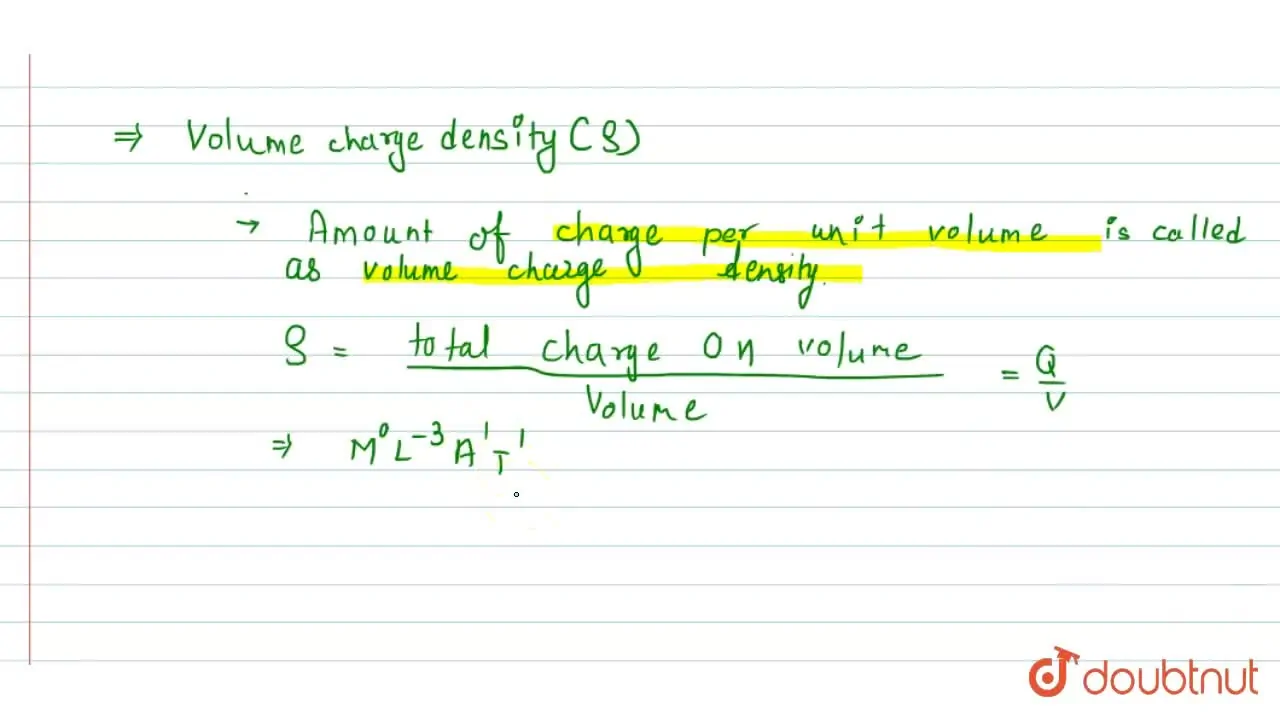 ⇒ Volume charge density (ρ)
→ Amount of charge per unit volume is called
as volume charge density.
ρ = total charge on volume / Volume = Q/V
⇒ M⁰ L⁻³ A¹ T¹
doubtnut